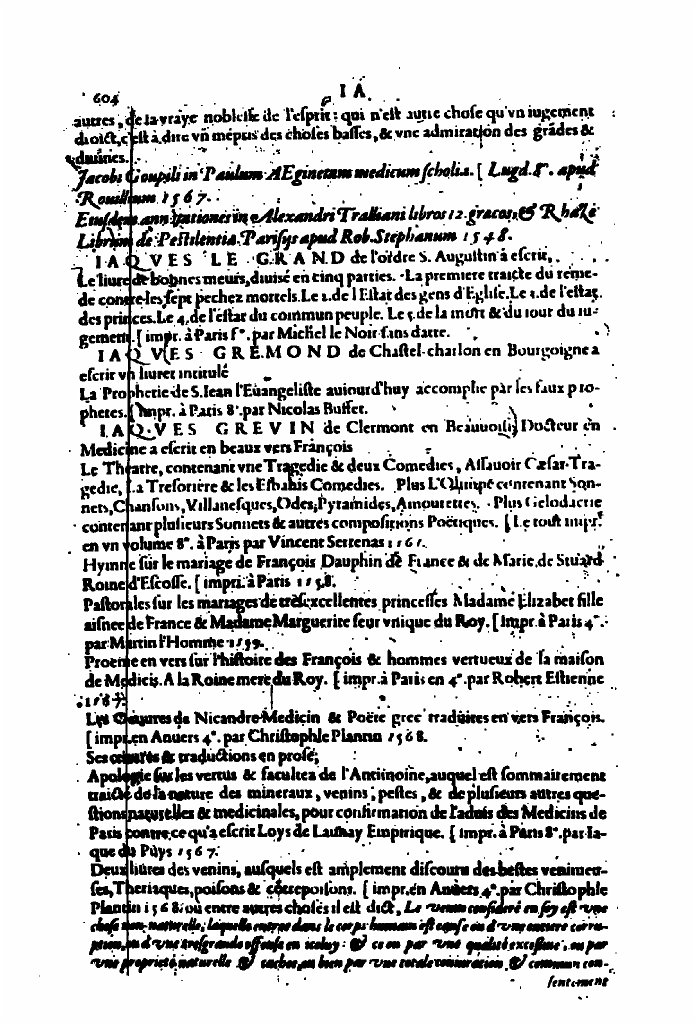 604
IA
autres, de la vraye noblesse de l'esprit: qui n'est autre chose qu'vn iugement
droict, c'est à dire vn mépris des choses basses, & vne admiration des grādes &
diuines.
Jacobi Goupili in Paulum AEginetam medicum scholia. [ Lugd. 8°. apud
Rouillium 1567.
Eiusdem annotationes in Alexandri Tralliani libros 12. græcos, & Rhaze
Librum de Pestilentia. Parisijs apud Rob. Stephanum 1548.
IAQVES LE GRAND de l'ordre S. Augustin à escrit,
Le liure de bonnes meurs, diuisé en cinq parties. La premiere traicte du reme-
de contre les sept pechez mortels. Le 2. de l'Estat des gens d'Eglise. Le 3. de l'estat
des princes. Le 4. de l'estat du commun peuple. Le 5. de la mort & du iour du iu-
gement. [ impr. à Paris f°. par Michel le Noir sans datte.
IAQVES GREMOND de Chastel-charlon en Bourgoigne a
escrit vn liuret intitulé
La Prophetie de S. Iean l'Euangeliste auiourd'huy accomplie par les faux pro-
phetes. [ Impr. à Paris 8°. par Nicolas Buffet.
IAQVES GREVIN de Clermont en Beauuoisis, Docteur en
Medicine a escrit en beaux vers François
Le Theatre, contenant vne Tragedie & deux Comedies, Assauoir Cæsar Tra-
gedie, La Tresoriere & les Esbahis Comedies. Plus L'Olimpe contenant Son-
nets, Chansons, Villanesques, Odes, Pyramides, Amourettes. Plus Gelodacrie
contenant plusieurs Sonnets & autres compositions Poëtiques. [ Le tout impr.
en vn volume 8°. à Paris par Vincent Sertenas 1561.
Hymne sur le mariage de François Dauphin de France & de Marie de Stuard
Roine d'Escosse. [ impr. à Paris 1558.
Pastorales sur les mariages de tresexcellentes princesses Madame Elizabet fille
aisnee de France & Madame Marguerite seur vnique du Roy. [ Impr. à Paris 4°.
par Martin l'Homme 1559.
Proeme en vers sur l'histoire des François & hommes vertueux de la maison
de Medicis. A la Roine mere du Roy. [ impr. à Paris en 4°. par Robert Estienne
1567.
Les Œuures de Nicandre Medicin & Poëte grec traduites en vers François.
[ impr. en Anuers 4°. par Christophle Plantin 1568.
Ses œuures & traductions en prose;
Apologie sur les vertus & facultez de l'Antimoine, auquel est sommairement
traicté de la nature des mineraux, venins, pestes, & de plusieurs autres que-
stions naturelles & medicinales, pour confirmation de l'aduis des Medicins de
Paris contre ce qu'a escrit Loys de Launay Empirique. [ Impr. à Paris 8°. par Ia-
que du Puys 1567.
Deux liures des venins, ausquels est amplement discouru des bestes venimeu-
ses, Theriaques, poisons & cōtrepoisons. [ impr. en Anuers 4°. par Christophle
Plantin 1568. ou entre autres choses il est dict, Le venin consideré en soy est vne
chose non-naturelle, laquelle entree dans le corps humain est cause ou d'vne entiere corru-
ption, ou d'vne tresgrande offense en iceluy: & ce ou par vne qualité excessiue, ou par
vne proprieté naturelle & cachee, ou bien par vne totale coniuration & commun con-
sentement